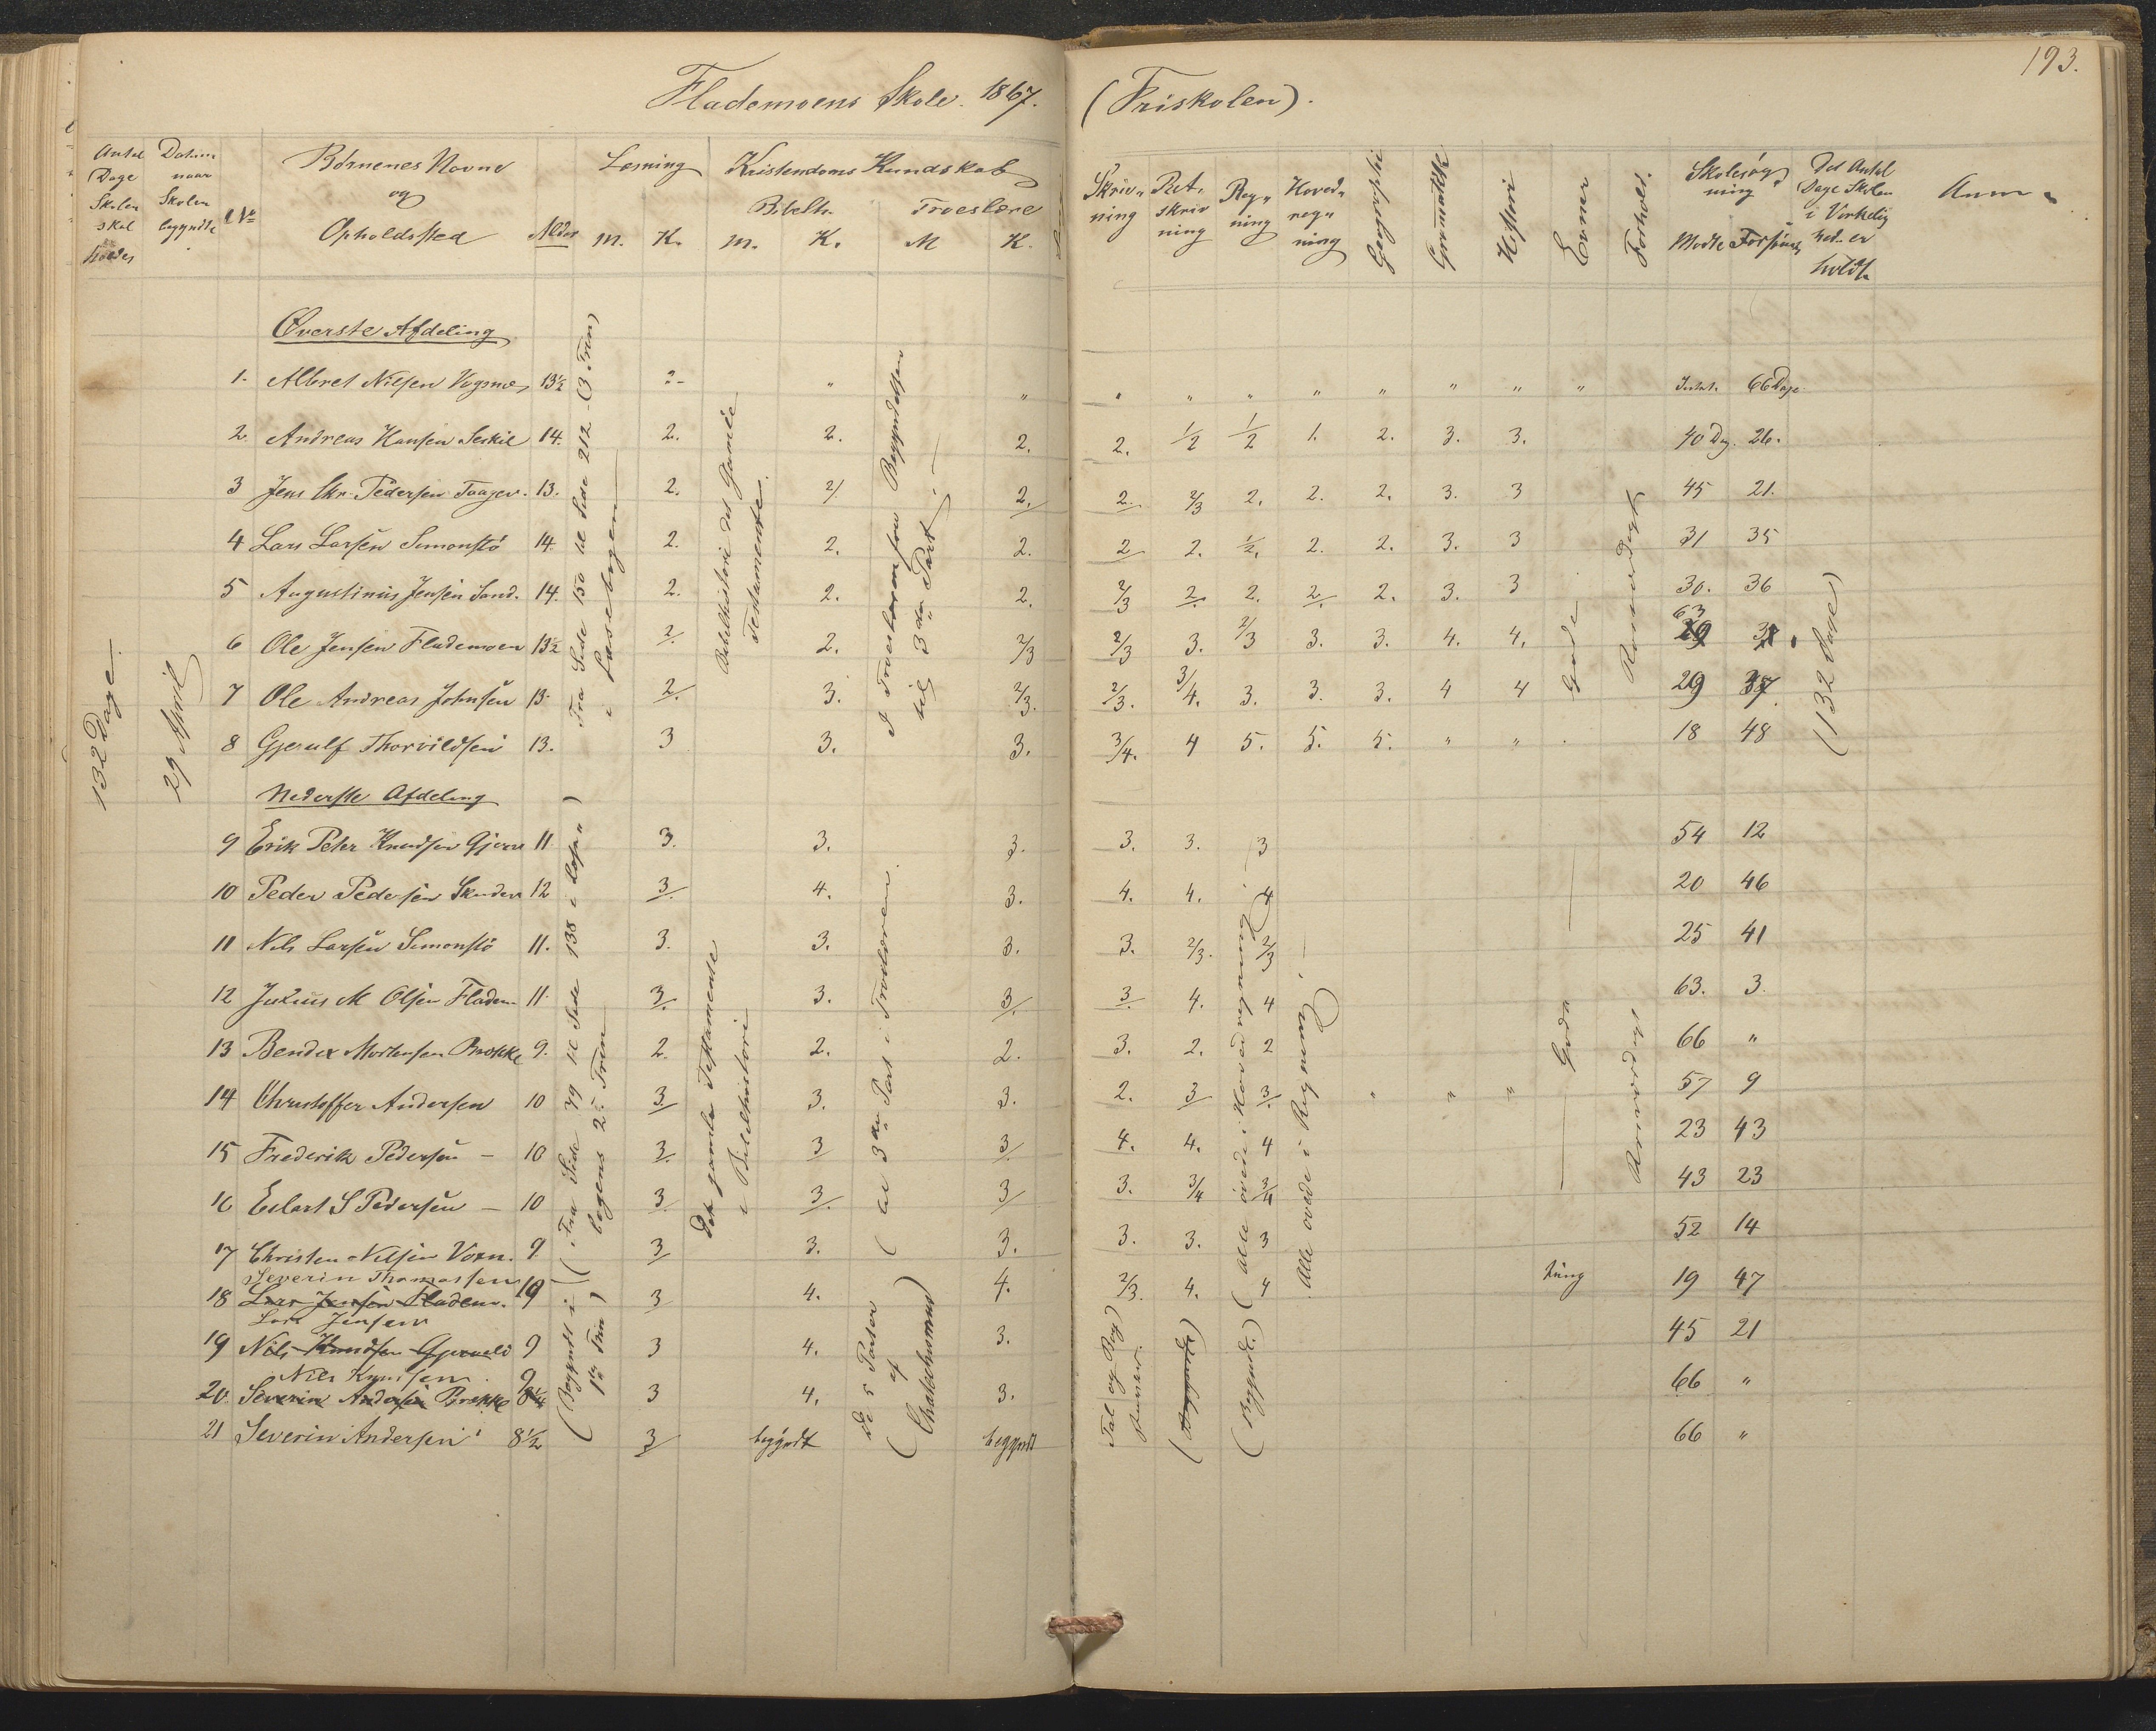 193.
Flademoens Skole. 1867. (Friskolen).
Antal Dage Skolen skal holdes
Datum naar Skolen begyndte
No
Børnenes Navne og Opholdssted
Alder
Læsning M. K.
Kristendoms Kundskab
Bibelh. M. K.
Troeslære M K.
Skriv„ning
Ret„skrivning
Reg„ning
Hoved„reg„ning
Geographi
Gramatikk
Histori
Evner
Forhold.
Skolesøgning
Mødte Forsømte
Det Antal Dage Skolen i Virkelighed er holdt
Anm„
132 Dage
29 April
Øverste Afdeling
1. Albret Nilsen Vogsnes 13½ 2- " " " " " " " " " " 66 Dage
2. Andreas Hansen Seskil 14. 2. 2. 2. 2. 1/2 1/2 1. 2. 3. 3. 40 Dg. 26.
3 Jens Chr. Pedersen 13. 2. 2/ 2. 2. 2/3 2. 2. 2. 3. 3 45 21.
4 Lars Larsen Simonstö 14. 2. 2. 2. 2 2. 1/2. 2. 2. 3. 3 31 35
5 Augustinus Jensen Sand. 14. 2. 2. 2. 2/3 2. 2. 2. 2. 3. 3 30. 36
6 Ole Jensen Flademoen 13½ 2. 2. 2/3 2/3 3. 2/3 3. 3. 4. 4. 63 3.
7 Ole Andreas Johnsen 13. 2. 3. 2/3. 2/3. 3/4. 3. 3. 3. 4 4 29 37.
8 Gjerulf Thorvildsen 13. 3 3. 3. 3/4. 4 5. 5. 5. " " 18 48
Fra Side 150 til Side 212 (3 Trin) i Læsebogen
Bibelhistorie det Gamle Testamente.
I Troeslæren fra Begyndelsen til 3die Part.
Gode
Roesværdigt
(132 Dage)
Nederste Afdeling
9 Erik Peter Knudsen 11. 3. 3. 3. 3. 3. 3 54 12
10 Peder Pedersen 12 3. 4. 3. 4. 4. 4 20 46
11 Nils Larsen Simonstö 11. 3. 3. 3. 3. 2/3. 2/3 25 41
12 Julius M Olsen Fladem. 11. 3. 3. 3. 3. 4. 4 63. 3.
13 Bendix Mortensen Brække 9. 2. 2. 2. 3. 2. 2 66 "
14 Christoffer Andersen 10 3 3. 3. 2. 3 3. " " " 57 9
15 Frederik Pedersen - 10 3. 3 3. 4. 4. 4 23 43
16 Eilert S Pedersen - 10 3. 3. 3 3. 3/4 3/4 43 23
17 Christen Nilsen Voxn. 9 3 3. 3. 3. 3. 3 52 14
Severin Thomassen
18 Lars Jensen Fladem. 10 3 4. 4. 2/3. 4. 4 tung 19 47
Lars Jensen
19 Nils Knudsen 9 3 4. 3. 45 21
Nils Knudsen 9
20. Severin Andersen Brække 8¼ 3 4. 3. 66 "
21 Severin Andersen 8½ 3 begyndt begyndt 66 "
(Fra Side 79 til Side 138 i Læse„bogens 2det Trin
(Begyndt i 1ste Trin)
Det gamle Testamente i Bibelhistori
(til 3die Part i Troeslæren
(De 5 Parter af Chatechismus)
(Alle øvede i Hovedregning)
Alle øvede i Regning.
Gode
Roesværdigt
Tal og Bog)
(Begyndt)
(Begyndt.)